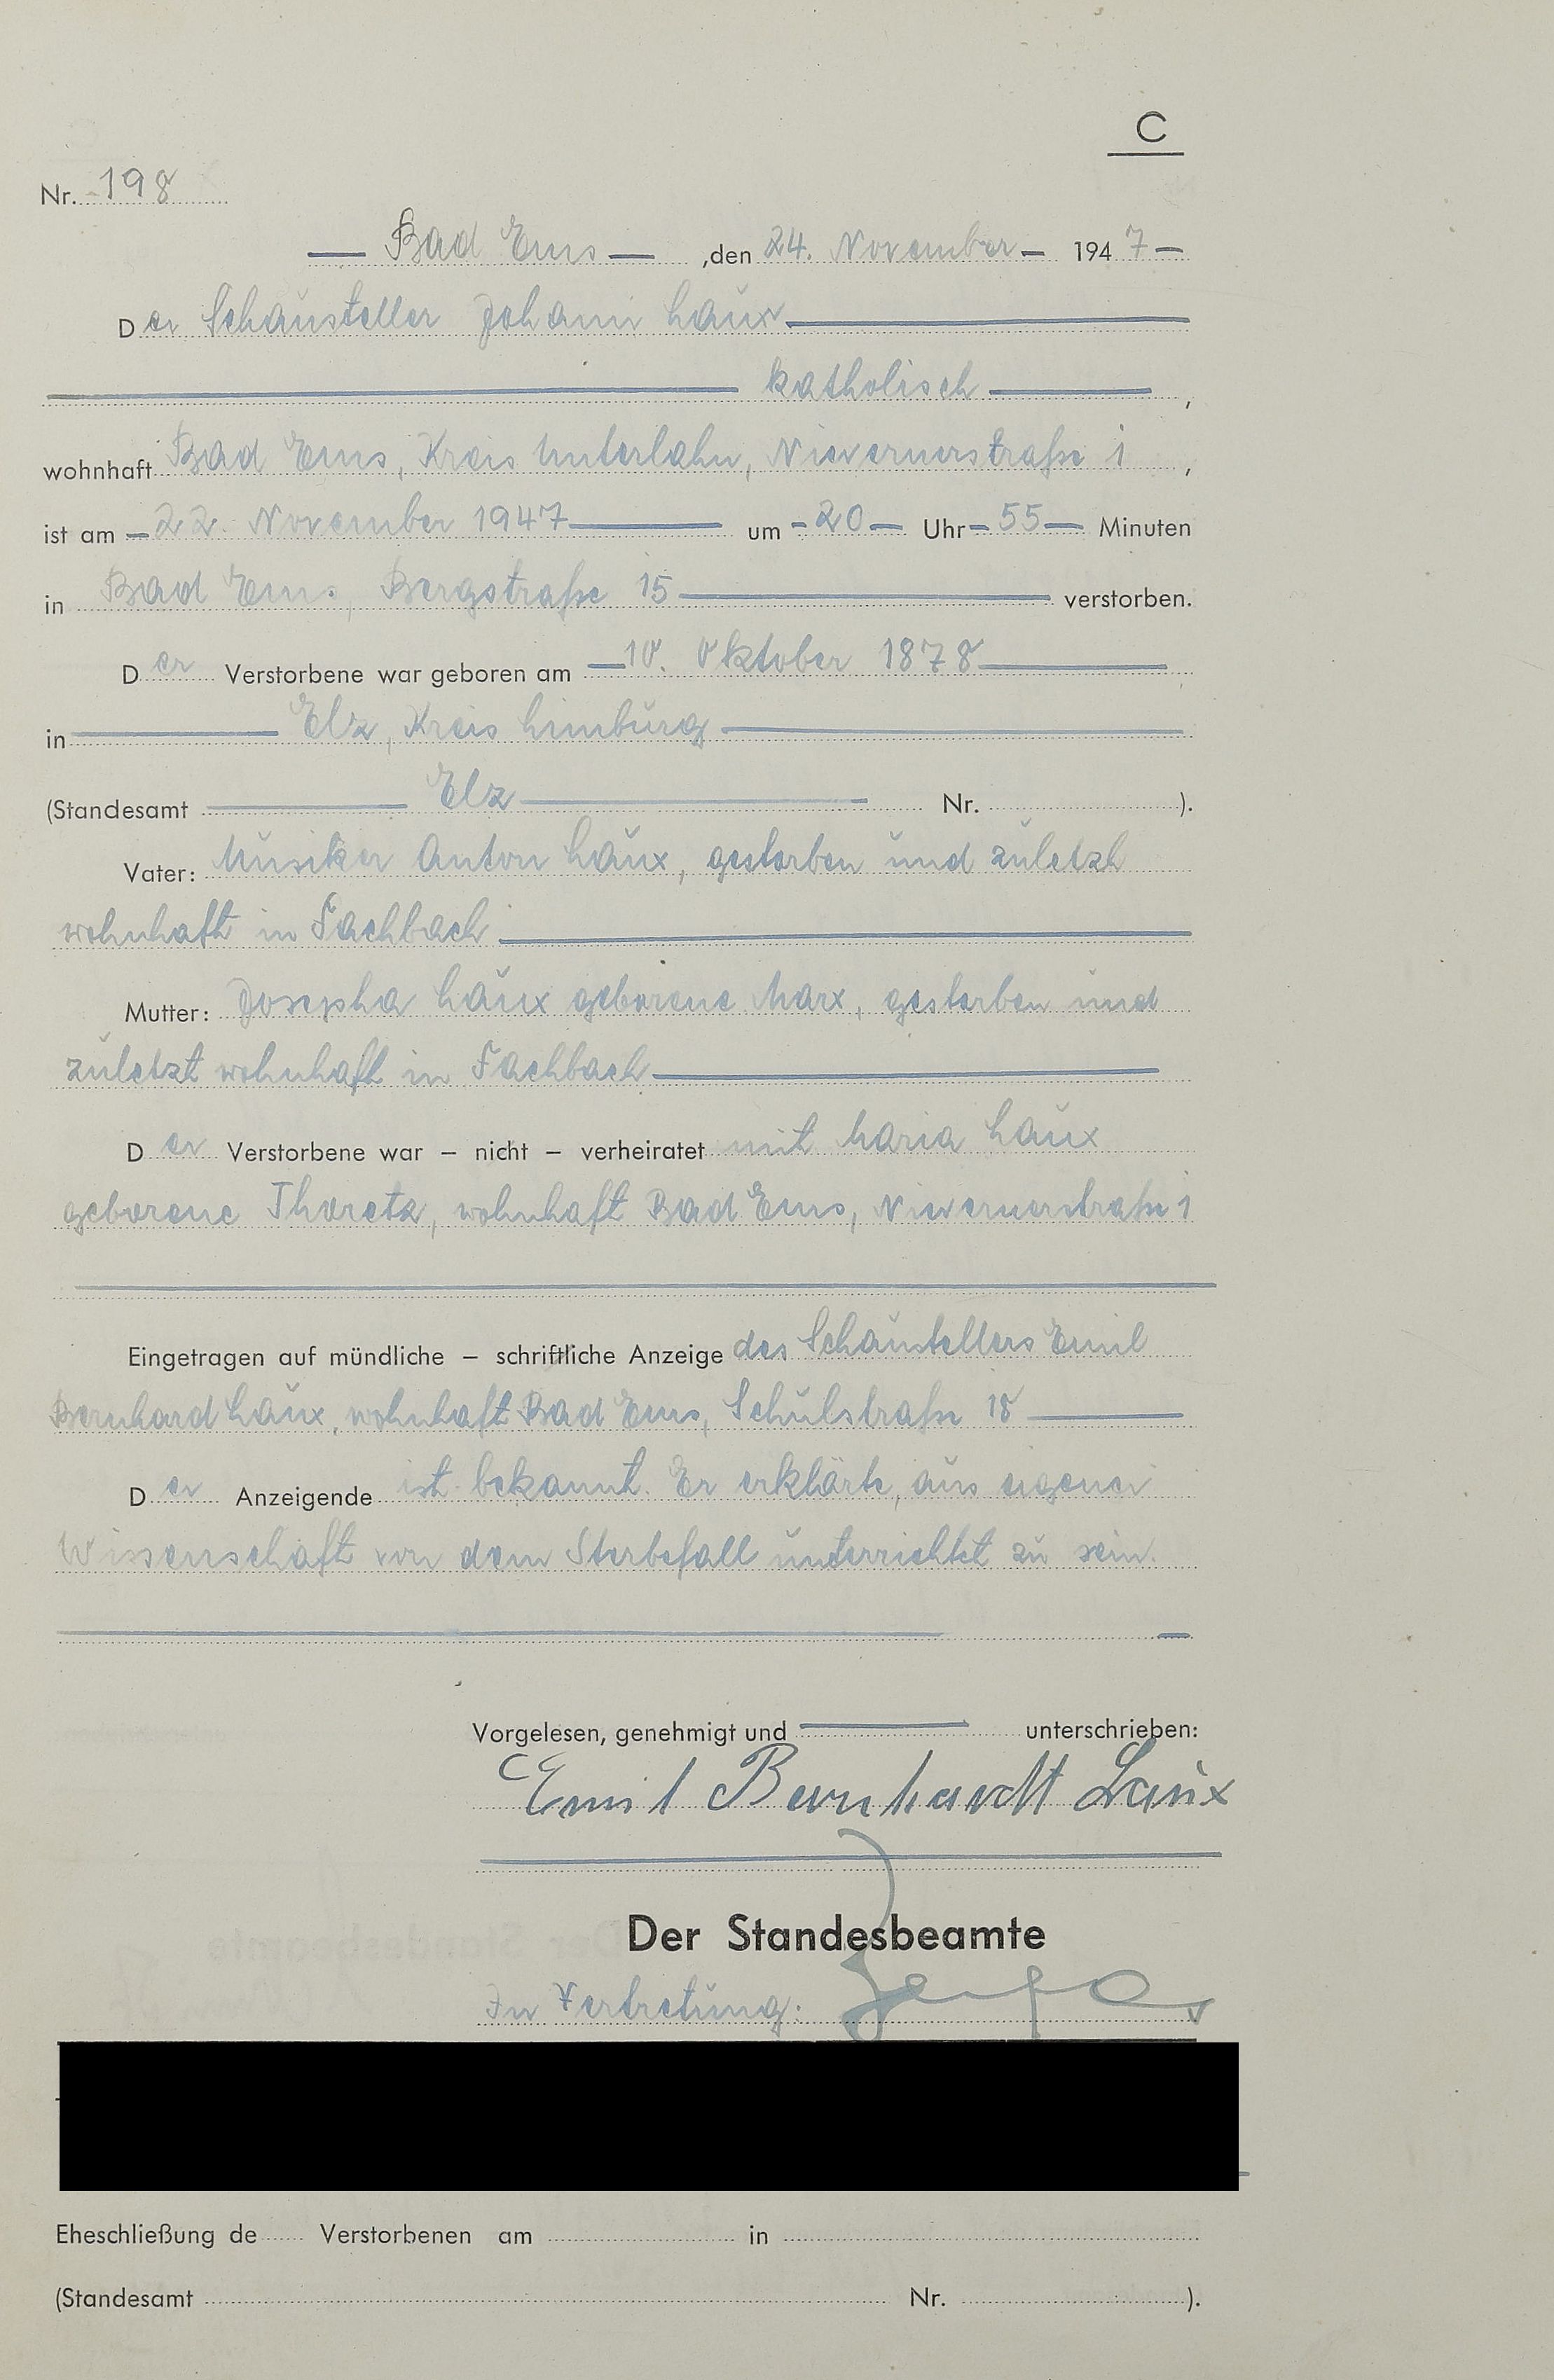 C
Nr. 198
Bad Ems, den 24. November 1947
Der Schausteller Johann Laux
katholisch,
wohnhaft Bad Ems, Kreis Unterlahn, Nievernerstraße 1,
ist am 22. November 1947 um 20 Uhr 55 Minuten
in Bad Ems, Bergstraße 15 verstorben.
Der Verstorbene war geboren am 10. Oktober 1878
in Elz, Kreis Limburg
(Standesamt Elz Nr. ).
Vater: Musiker Anton Laux, gestorben und zuletzt
wohnhaft in Fachbach
Mutter: Josepha Laux geborene Marx, gestorben und
zuletzt wohnhaft in Fachbach
Der Verstorbene war – nicht – verheiratet mit Maria Laux
geborene Thoretz, wohnhaft Bad Ems, Nievernerstraße 1
Eingetragen auf mündliche – schriftliche Anzeige des Schaustellers Emil
Bernhard Laux, wohnhaft Bad Ems, Schulstraße 18
Der Anzeigende ist bekannt. Er erklärte, aus eigener
Wissenschaft von dem Sterbefall unterrichtet zu sein.
Vorgelesen, genehmigt und unterschrieben:
Emil Bernhardt Laux
Der Standesbeamte
In Vertretung:
Eheschließung de Verstorbenen am in
(Standesamt Nr. ).